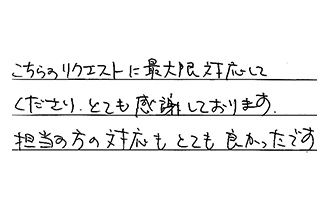 こちらのリクエストに最大限対応して
くださり、とても感謝しております。
担当の方の対応もとても良かったです